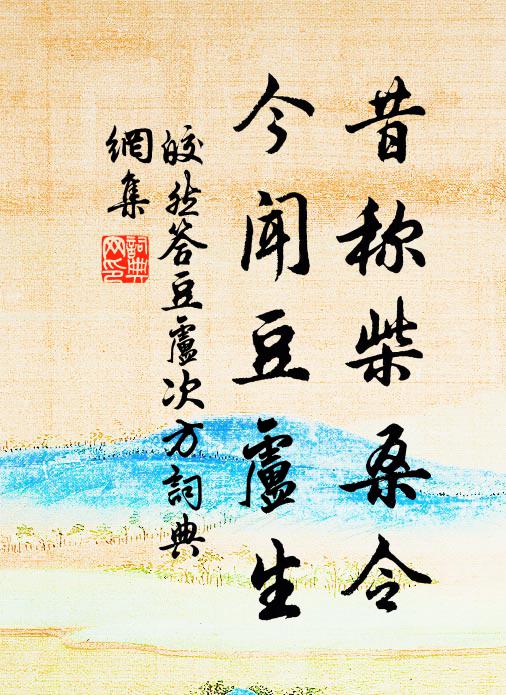 昔称柴桑令
今闻豆廬生
皎然答豆廬次方詞典
網集
詞典
网印